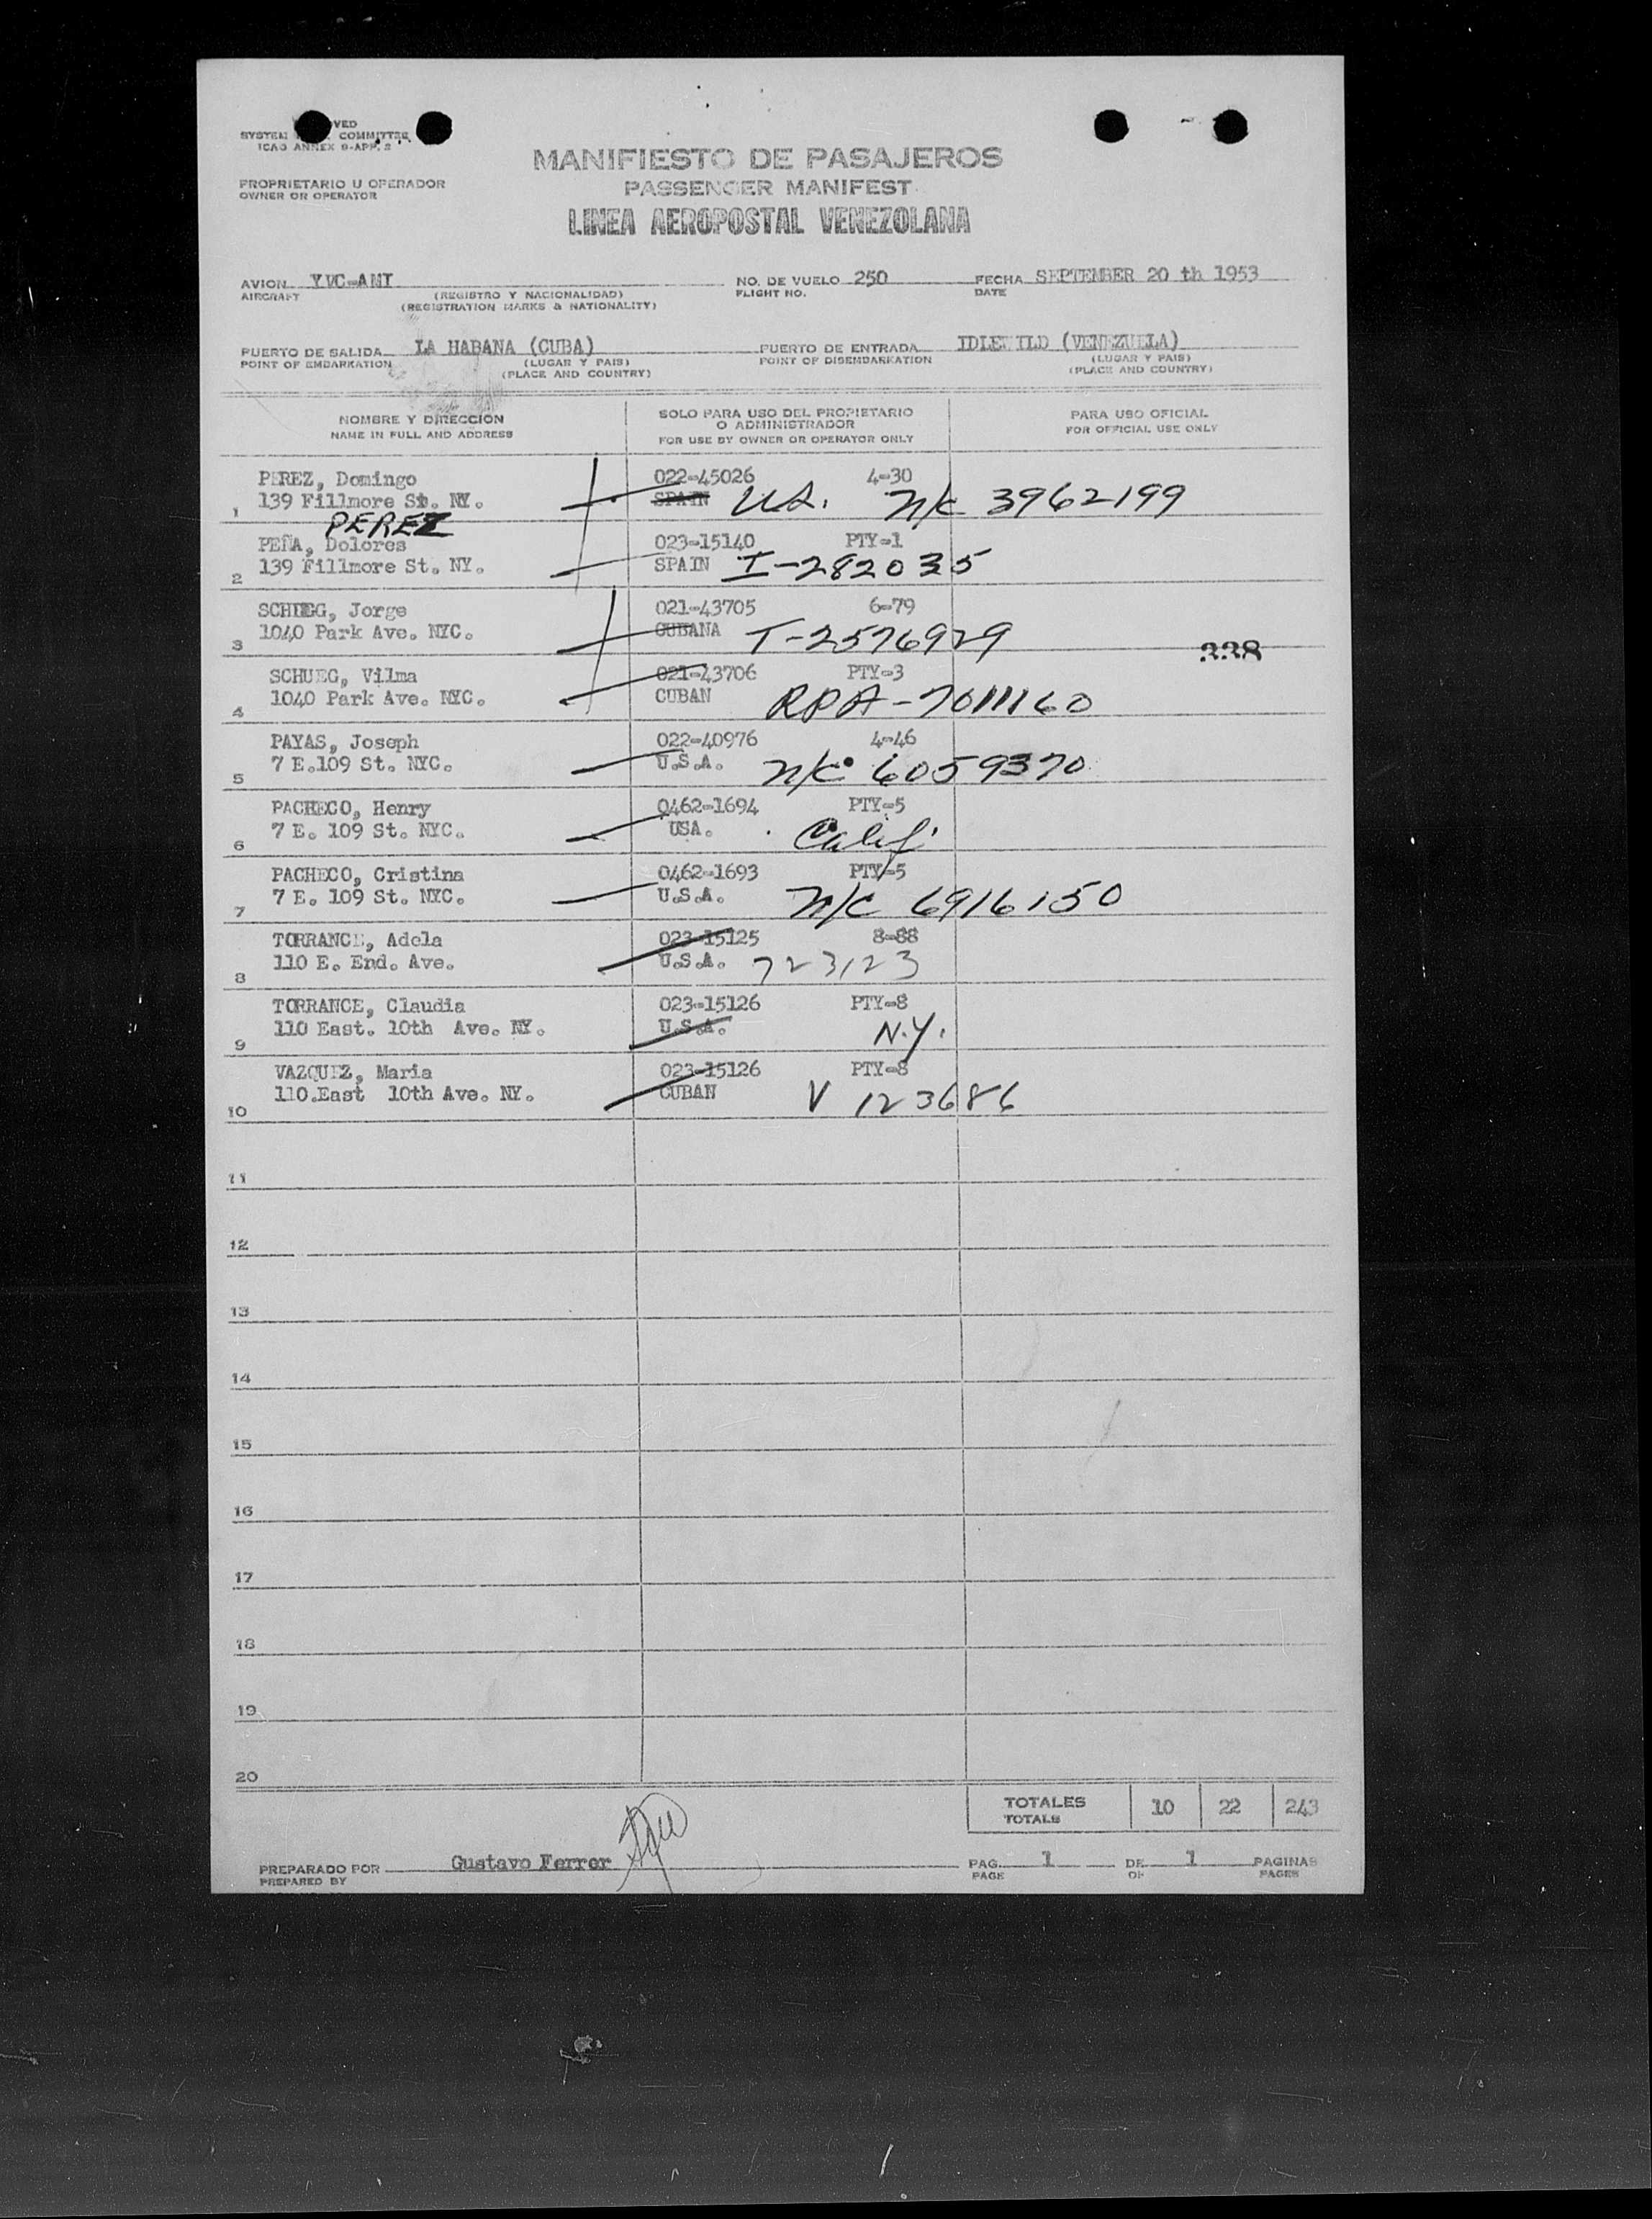 SYSTEM COMMITTEE
ICAO ANNEX 9-APP. 2
MANIFIESTO DE PASAJEROS
PROPRIETARIO U OPERADOR
OWNER OR OPERATOR
PASSENGER MANIFEST
LINEA AEROPOSTAL VENEZOLANA
AVION YVC-AMI NO. DE VUELO 250 FECHA SEPTEMBER 20 th 1953
AIRCRAFT (REGISTRO Y NACIONALIDAD) FLIGHT NO. DATE
(REGISTRATION MARKS & NATIONALITY)
PUERTO DE SALIDA LA HABANA (CUBA) PUERTO DE ENTRADA IDLEWILD (VENEZUELA)
POINT OF EMBARKATION (LUGAR Y PAIS) POINT OF DISEMBARKATION (LUGAR Y PAIS)
(PLACE AND COUNTRY) (PLACE AND COUNTRY)
NOMBRE Y DIRECCION SOLO PARA USO DEL PROPIETARIO O ADMINISTRADOR PARA USO OFICIAL
NAME IN FULL AND ADDRESS FOR USE BY OWNER OR OPERATOR ONLY FOR OFFICIAL USE ONLY
PEREZ, Domingo 022-45026 4-30
1 139 Fillmore St. NY. SPAIN U.S. N/C 3962199
PEREZ
PEÑA, Dolores 023-15140 PTY-1
2 139 Fillmore St. NY. SPAIN I-282035
SCHUEG, Jorge 021-43705 6-79
3 1040 Park Ave. NYC. CUBANA T-2576929
338
SCHUEG, Vilma 021-43706 PTY-3
4 1040 Park Ave. NYC. CUBAN RPA-7011160
PAYAS, Joseph 022-40976 4-46
5 7 E.109 St. NYC. U.S.A. N/C 6059370
PACHECO, Henry 0462-1694 PTY-5
6 7 E. 109 St. NYC. USA. Calif.
PACHECO, Cristina 0462-1693 PTY-5
7 7 E. 109 St. NYC. U.S.A. N/C 6916150
TORRANCE, Adela 023-15125 8-88
8 110 E. End. Ave. U.S.A. 723123
TORRANCE, Claudia 023-15126 PTY-8
9 110 East. 10th Ave. NY. U.S.A. N.Y.
VAZQUEZ, Maria 023-15126 PTY-8
10 110.East 10th Ave. NY. CUBAN V 123686
11
12
13
14
15
16
17
18
19
20
TOTALES 10 22 243
TOTALS
PREPARADO POR Gustavo Ferrer PAG. 1 DE 1 PAGINAS
PREPARED BY PAGE OF PAGES